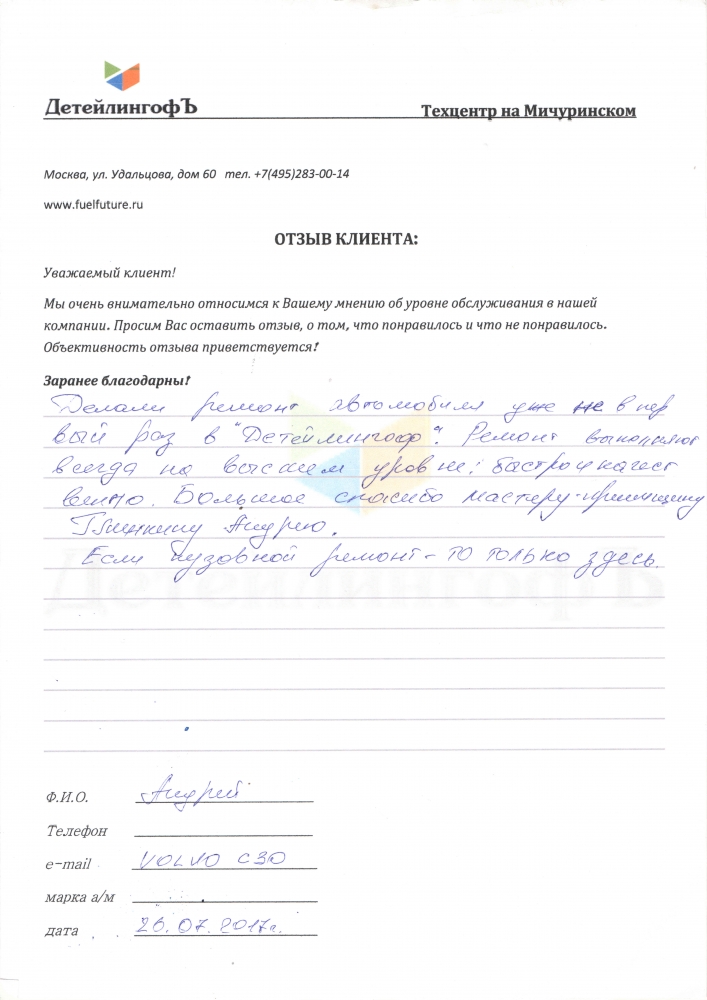 ДетейлингофЪ
Техцентр на Мичуринском
Москва, ул. Удальцова, дом 60 тел. +7(495)283-00-14
www.fuelfuture.ru
ОТЗЫВ КЛИЕНТА:
Уважаемый клиент!
Мы очень внимательно относимся к Вашему мнению об уровне обслуживания в нашей
компании. Просим Вас оставить отзыв, о том, что понравилось и что не понравилось.
Объективность отзыва приветствуется!
Заранее благодарны!
Делали ремонт автомобиля уже не в пер
вый раз в "Детейлингоф". Ремонт выполняют
всегда на высшем уровне: быстро и качест
венно. Большое спасибо мастеру-приемщику
Андрею.
Если кузовной ремонт - то только здесь.
Ф.И.О. Андрей
Телефон
e-mail VOLVO C30
марка а/м
дата 26.07.2017г.